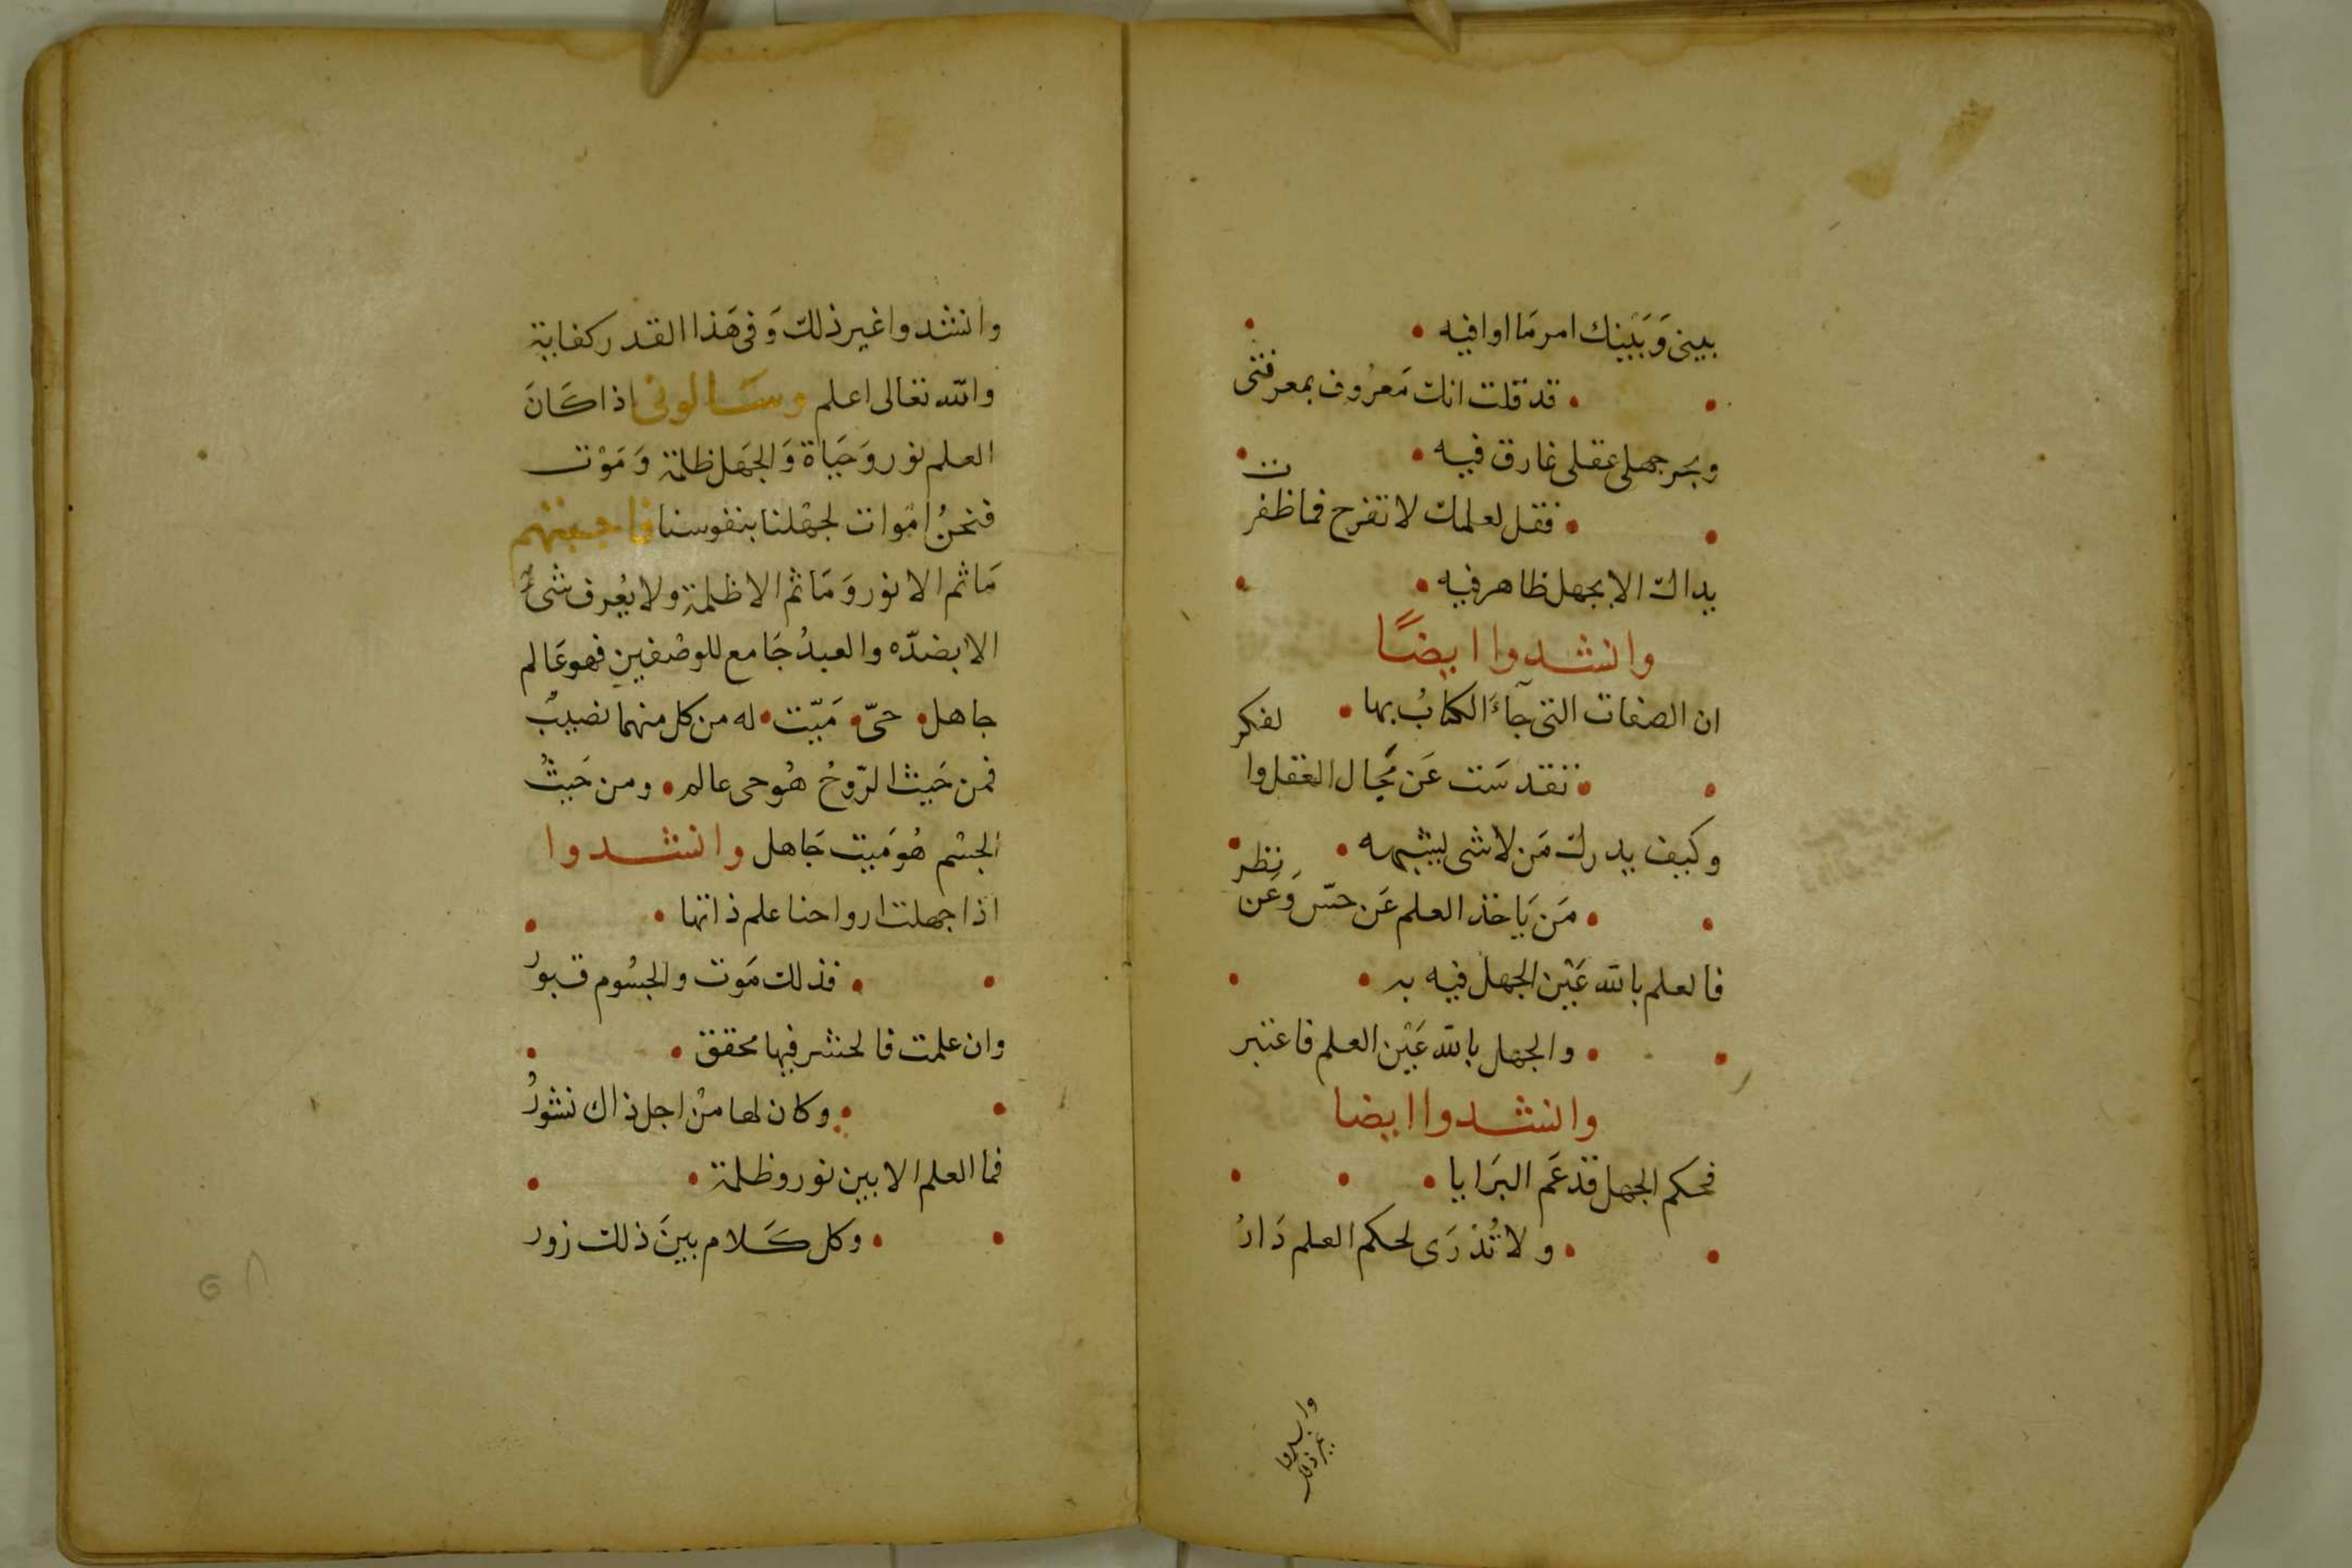 بيني وَبَيْنك امر مَا اوافيه
قد قلت انك مَعرُوف بمعرفتى
وبحر جهلى عقلى غارق فيه
فقل لعلمك لا تفرح فما ظفرت
يداك الا بجهل ظاهر فيه
وانشدوا ايضًا
ان الصفات التى جآءَ الكتابُ بها
تقدسَت عَن مَجال العقل والفكر
وكيف يدرك مَن لا شى يشبهه
مَن يَاخذ العلم عَن حسّ وَعَن نظر
فالعلم بالله عَيْن الجهل فيه به
والجهل بالله عَيْن العلم فاعتبر
وانشدوا ايضا
فحكم الجهل قد عَم البَرَايا
ولا تُدْرَى لحكم العلم دَارُ
وانشدوا
غير ذلك
وانشدوا غير ذلك وَفى هَذا القدر كفاية
والله تعالى اعلم وسَالونى اذا كَانَ
العلم نور وَحيَاة وَالجَهل ظلمة وَمَوْت
فنحنُ امَوات لجهْلنا بنفوسنا فاجبتهم
مَا ثم الا نور وَمَا ثم الا ظلمة ولا يُعرف شىءٌ
الا بضدّه والعبدُ جَامع للوصْفين فهو عَالم
جاهل حىّ مَيّت له من كل منهما نصيبُ
فمن حَيث الرّوحُ هُو حى عالم ومن حَيثُ
الجسْم هُو مَيت جَاهل وانشدوا
اذا جهلت ارواحنا علم ذاتها
فذلك مَوت والجسُوم قبورُ
وان علمت فالحشر فيها محقق
وكان لها منْ اجل ذاك نشورُ
فما العلم الا بين نور وظلمة
وكل كَلام بينَ ذلك زور